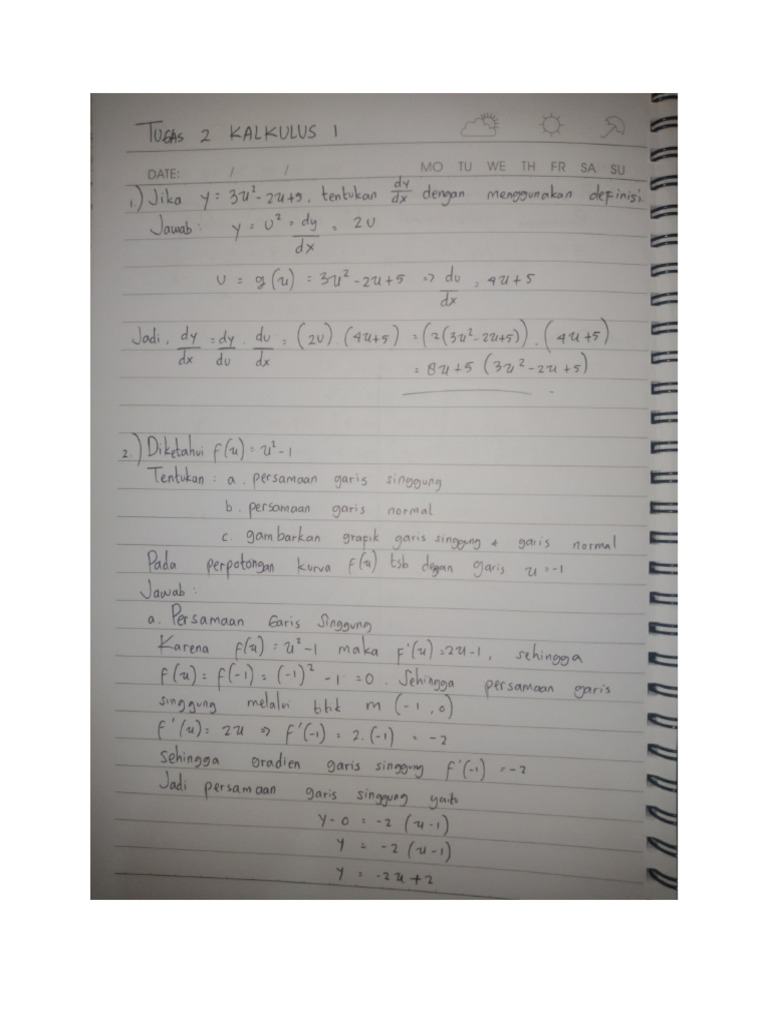 TUGAS 2 KALKULUS 1
DATE: / / MO TU WE TH FR SA SU
1.) Jika y = 3u² - 2u + 5, tentukan dy/dx dengan menggunakan definisi
Jawab: y = U² = dy/dx = 2U
U = g(u) = 3u² - 2u + 5 => du/dx, 4u + 5
Jadi, dy/dx = dy/du . du/dx = (2U) . (4u+5) = (2(3u² - 2u + 5)) . (4u+5)
= 8u + 5 (3u² - 2u + 5)
2.) Diketahui f(u) = u² - 1
Tentukan : a. persamaan garis singgung
b. persamaan garis normal
c. gambarkan grafik garis singgung & garis normal
Pada perpotongan kurva f(u) tsb degan garis u = -1
Jawab :
a. Persamaan Garis Singgung
Karena f(u) = u² - 1 maka f'(u) = 2u - 1, sehingga
f(u) = f(-1) = (-1)² - 1 = 0. Sehingga persamaan garis
singgung melalui titik m (-1, 0)
f'(u) = 2u => f'(-1) = 2.(-1) = -2
Sehingga Gradien garis singgung f'(-1) = -2
Jadi persamaan garis singgung yaitu
y - 0 = -2 (u - 1)
y = -2 (u - 1)
y = -2u + 2